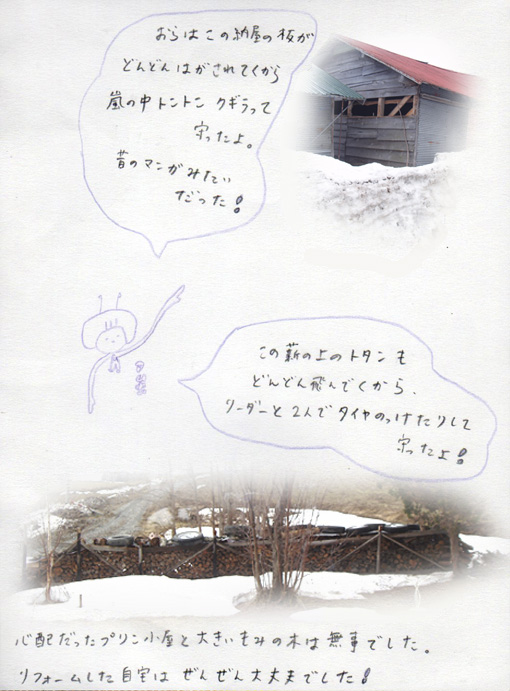 おらはこの納屋の板が
どんどんはがされてくから
嵐の中トントン クギうって
守ったよ。
昔のマンガみたい
だった!
この薪の上のトタンも
どんどん飛んでくから、
リーダーと2人でタイヤのっけたりして
守ったよ!
心配だったプリン小屋と大きいもみの木は無事でした。
リフォームした自宅は ぜんぜん大丈夫でした!